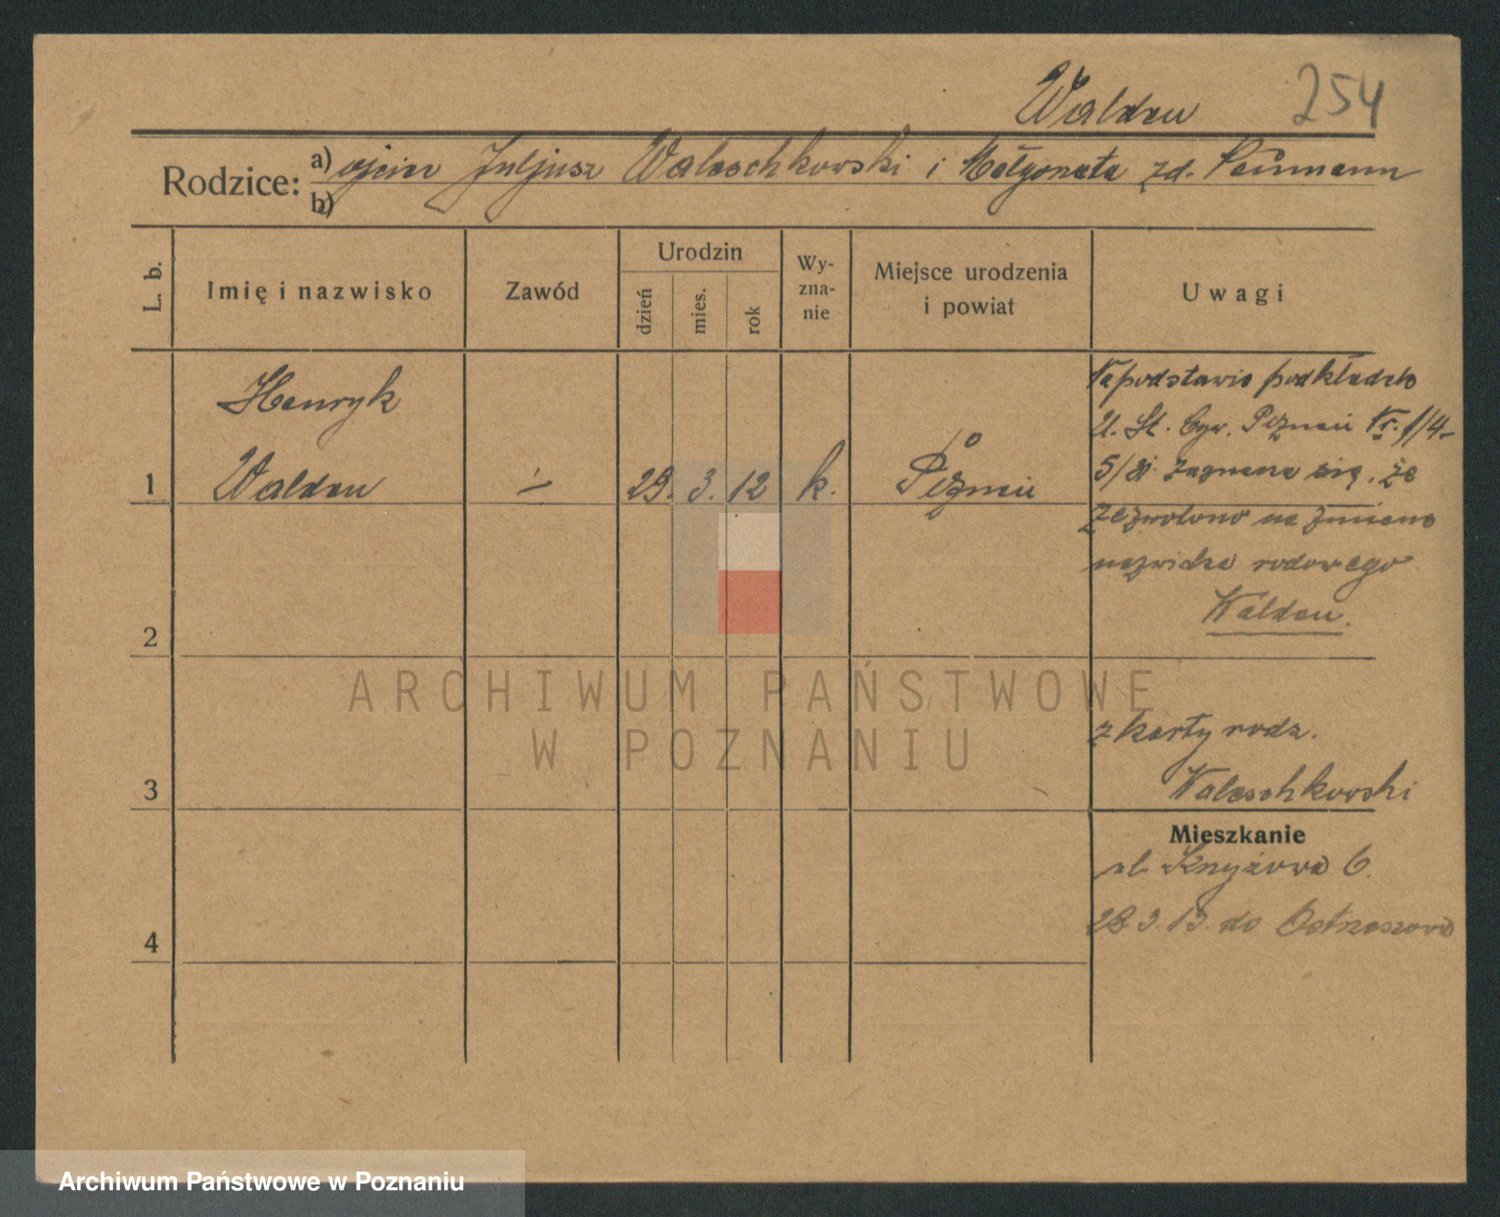 Walden 254
Rodzice: a) Juljusz Waleschkowski i Małgorzata zd. Neumann
b)
L. b. Imię i nazwisko Zawód Urodzin dzień mies. rok Wy-zna-nie Miejsce urodzenia i powiat Uwagi
Henryk
1 Walden - 29. 3. 12 k. Poznań
Na podstawie podkładek
U. St. Cyw. Poznań Nr.
zaznacza się, że
zezwolono na zmianę
nazwiska rodowego
Walden.
2
z karty rodz.
3 Waleschkowski
Mieszkanie
ul. 6.
28.3.13. do Ostrzeszowa
4
ARCHIWUM PAŃSTWOWE
W POZNANIU
Archiwum Państwowe w Poznaniu